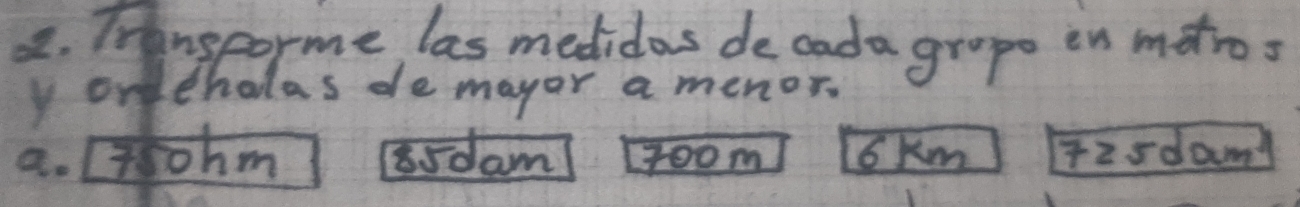 2. Transforme las medidas de cada grupo en metros
y ordénalas de mayor a menor.
a. 750hm 85dam 700m 6Km 725dam